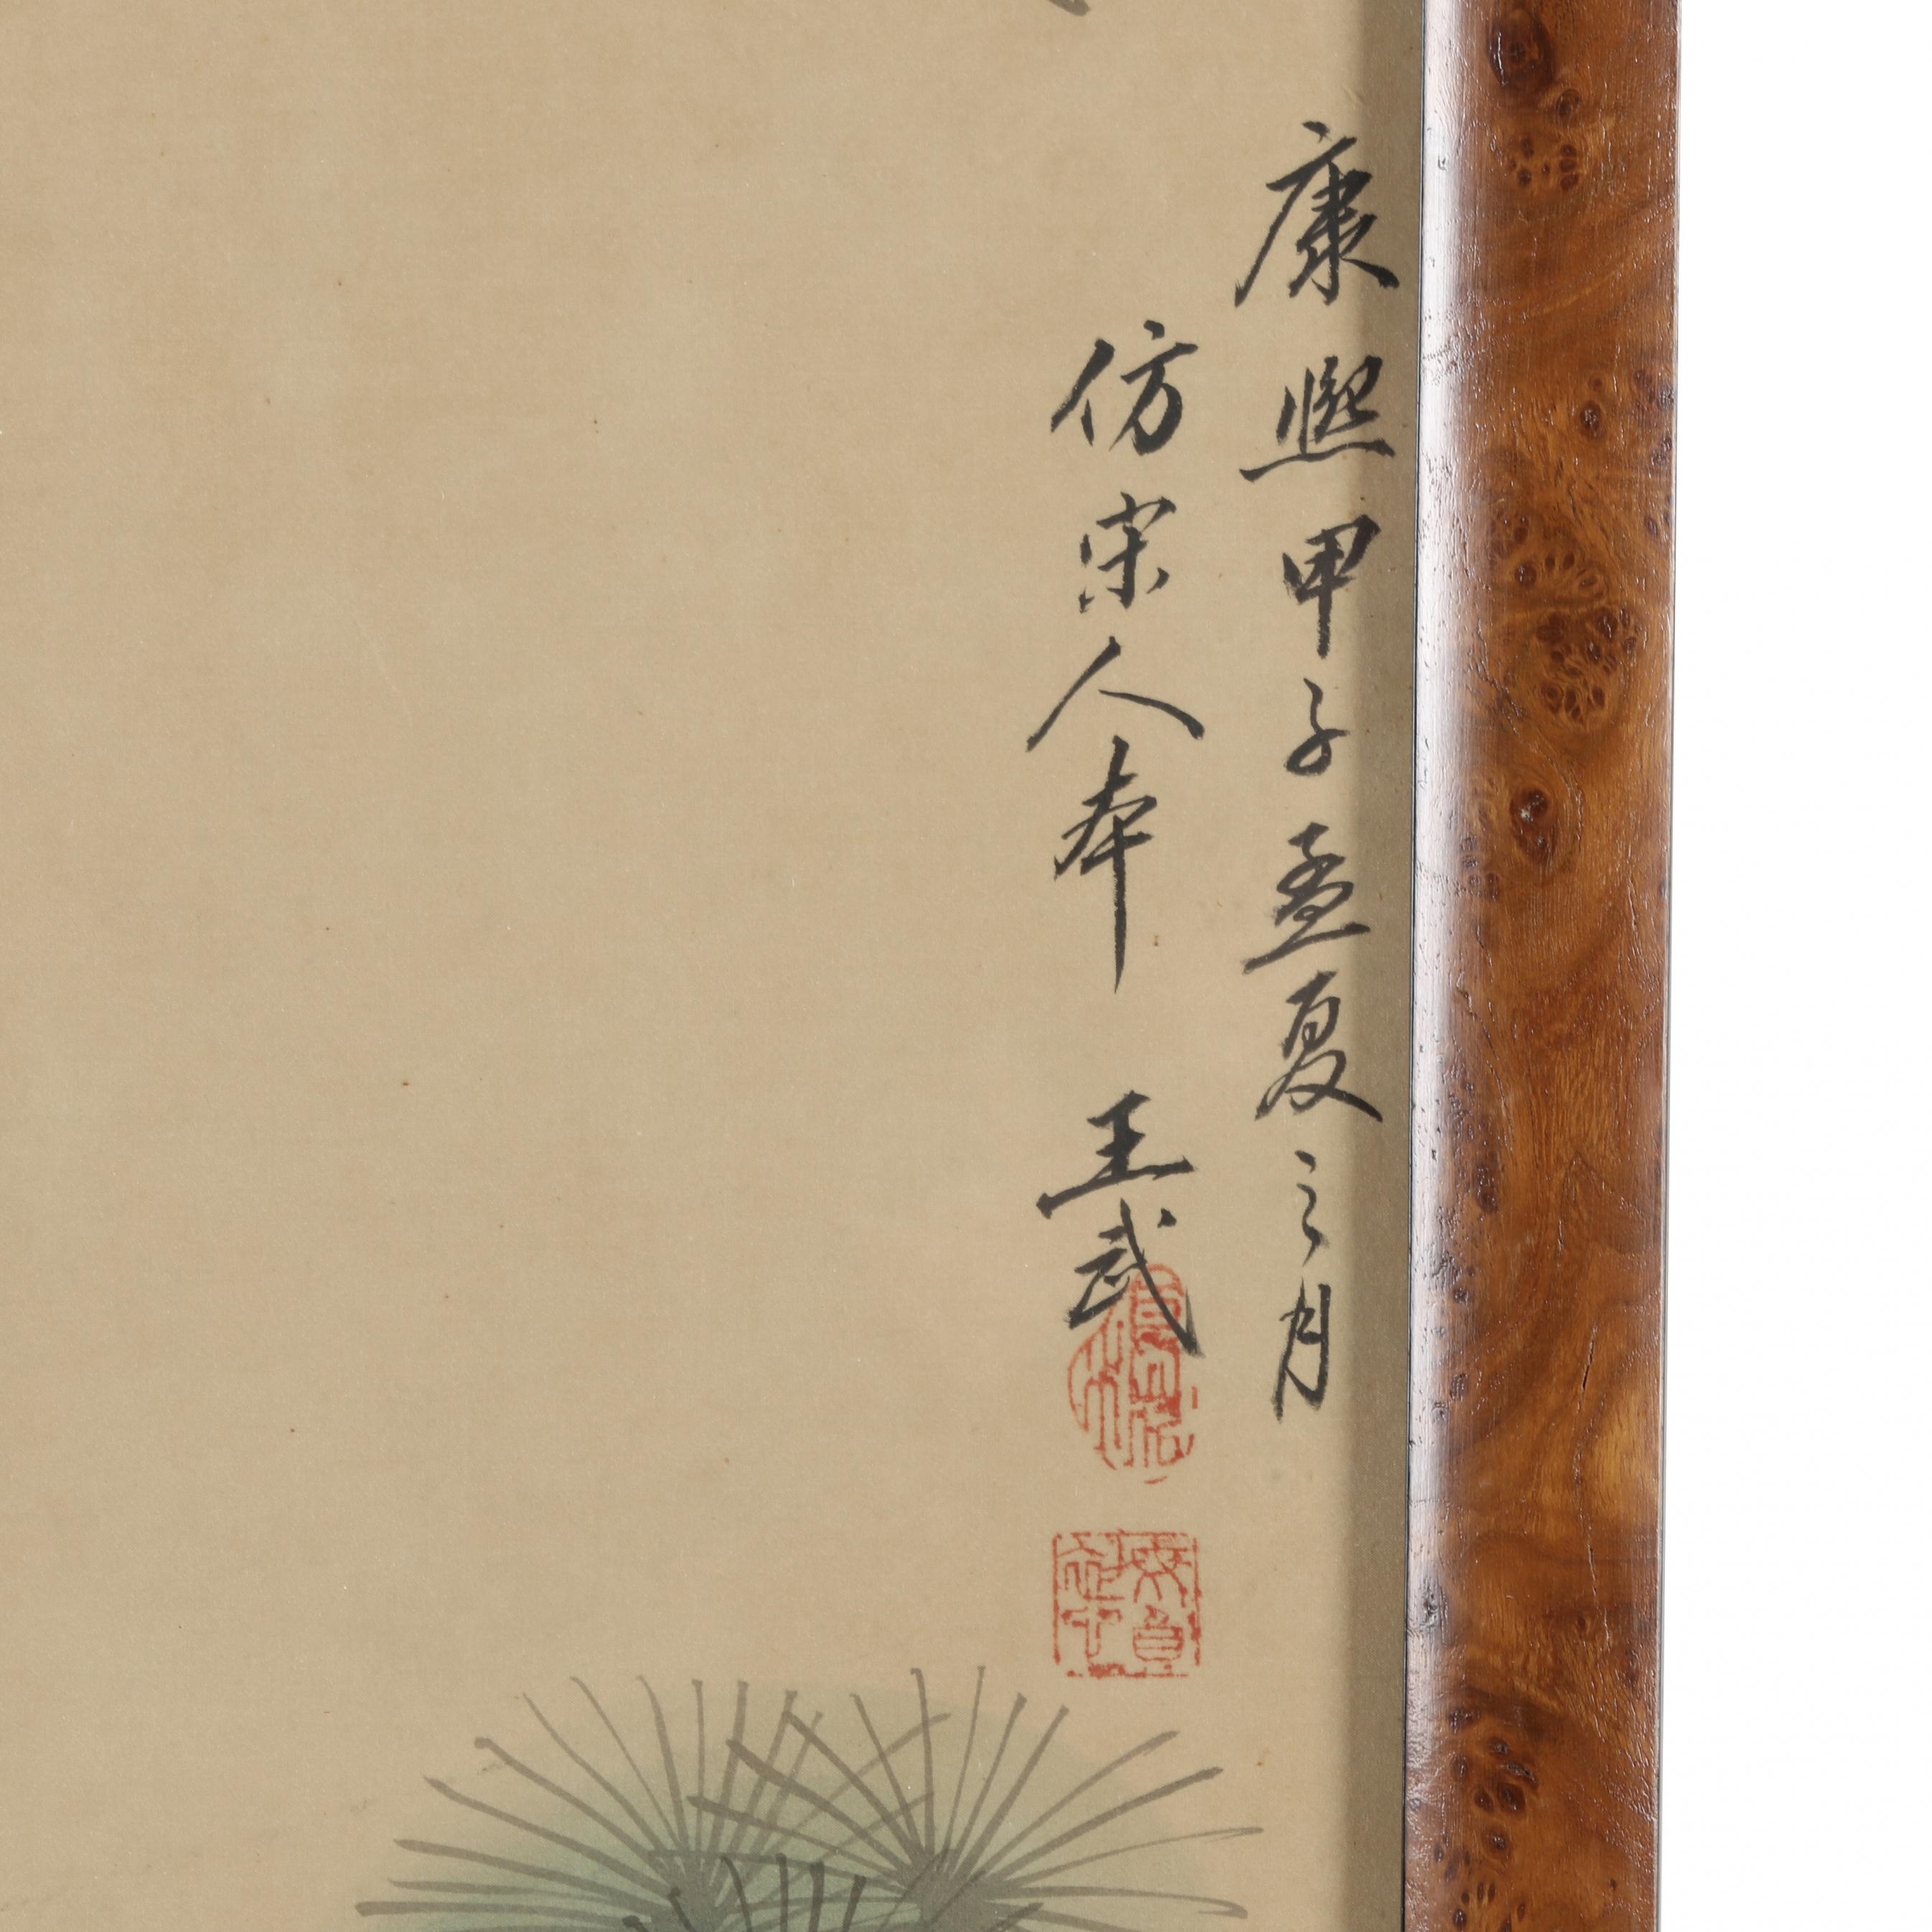 康熙甲子孟夏之月
仿宋人本 王武